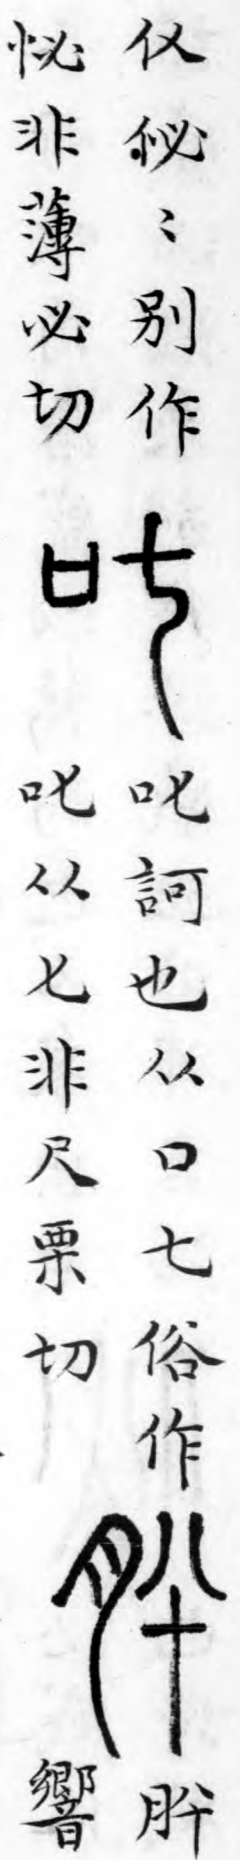 仪佖〻别作
怭非薄必切
叱
叱訶也从口七俗作
叱从匕非尺栗切
肸
肸
響